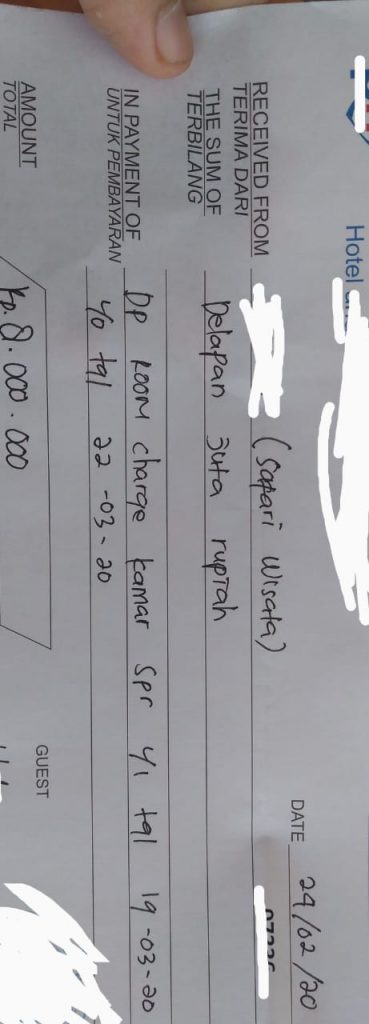 Hotel
DATE 29/02/20
RECEIVED FROM (Safari Wisata)
TERIMA DARI
THE SUM OF Delapan Juta rupiah
TERBILANG
IN PAYMENT OF Dp Room charge kamar Spr y/ tgl 19-03-20
UNTUK PEMBAYARAN y/o tgl 22-03-20
AMOUNT Rp. 8.000.000
TOTAL
GUEST